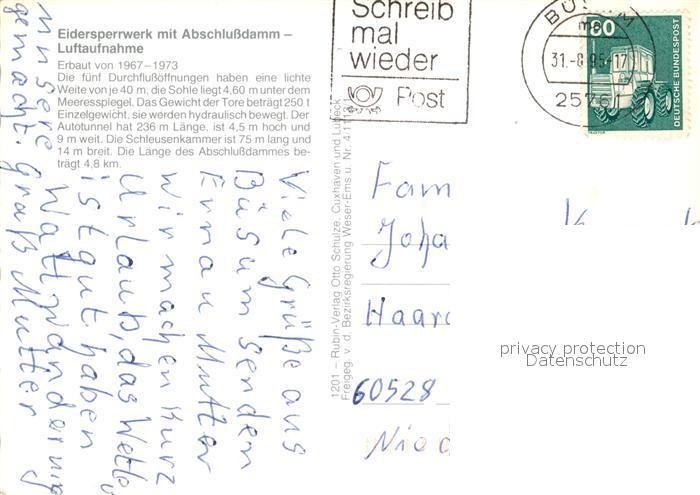 Eidersperrwerk mit Abschlußdamm –
Luftaufnahme
Erbaut von 1967–1973
Die fünf Durchflußöffnungen haben eine lichte
Weite von je 40 m, die Sohle liegt 4,60 m unter dem
Meeresspiegel. Das Gewicht der Tore beträgt 250 t
Einzelgewicht, sie werden hydraulisch bewegt. Der
Autotunnel hat 236 m Länge, ist 4,5 m hoch und
9 m weit. Die Schleusenkammer ist 75 m lang und
14 m breit. Die Länge des Abschlußdammes be-
trägt 4,8 km.
Schreib
mal
wieder
Post
31.-8.95-17
80
DEUTSCHE BUNDESPOST
Viele Grüße aus
Büsum senden
Erna u Mutter
wir machen kurz
Urlaub, das Wetter
ist gut, haben
Wattwanderung
gemacht. Gruß Mutter
unsere
1201 – Rubin-Verlag Otto Schulze, Cuxhaven und Lübeck
Freigeg. v. d. Bezirksregierung Weser-Ems u. Nr. 4/111
Fam
Joha
Haard
60528
Nied
privacy protection
Datenschutz